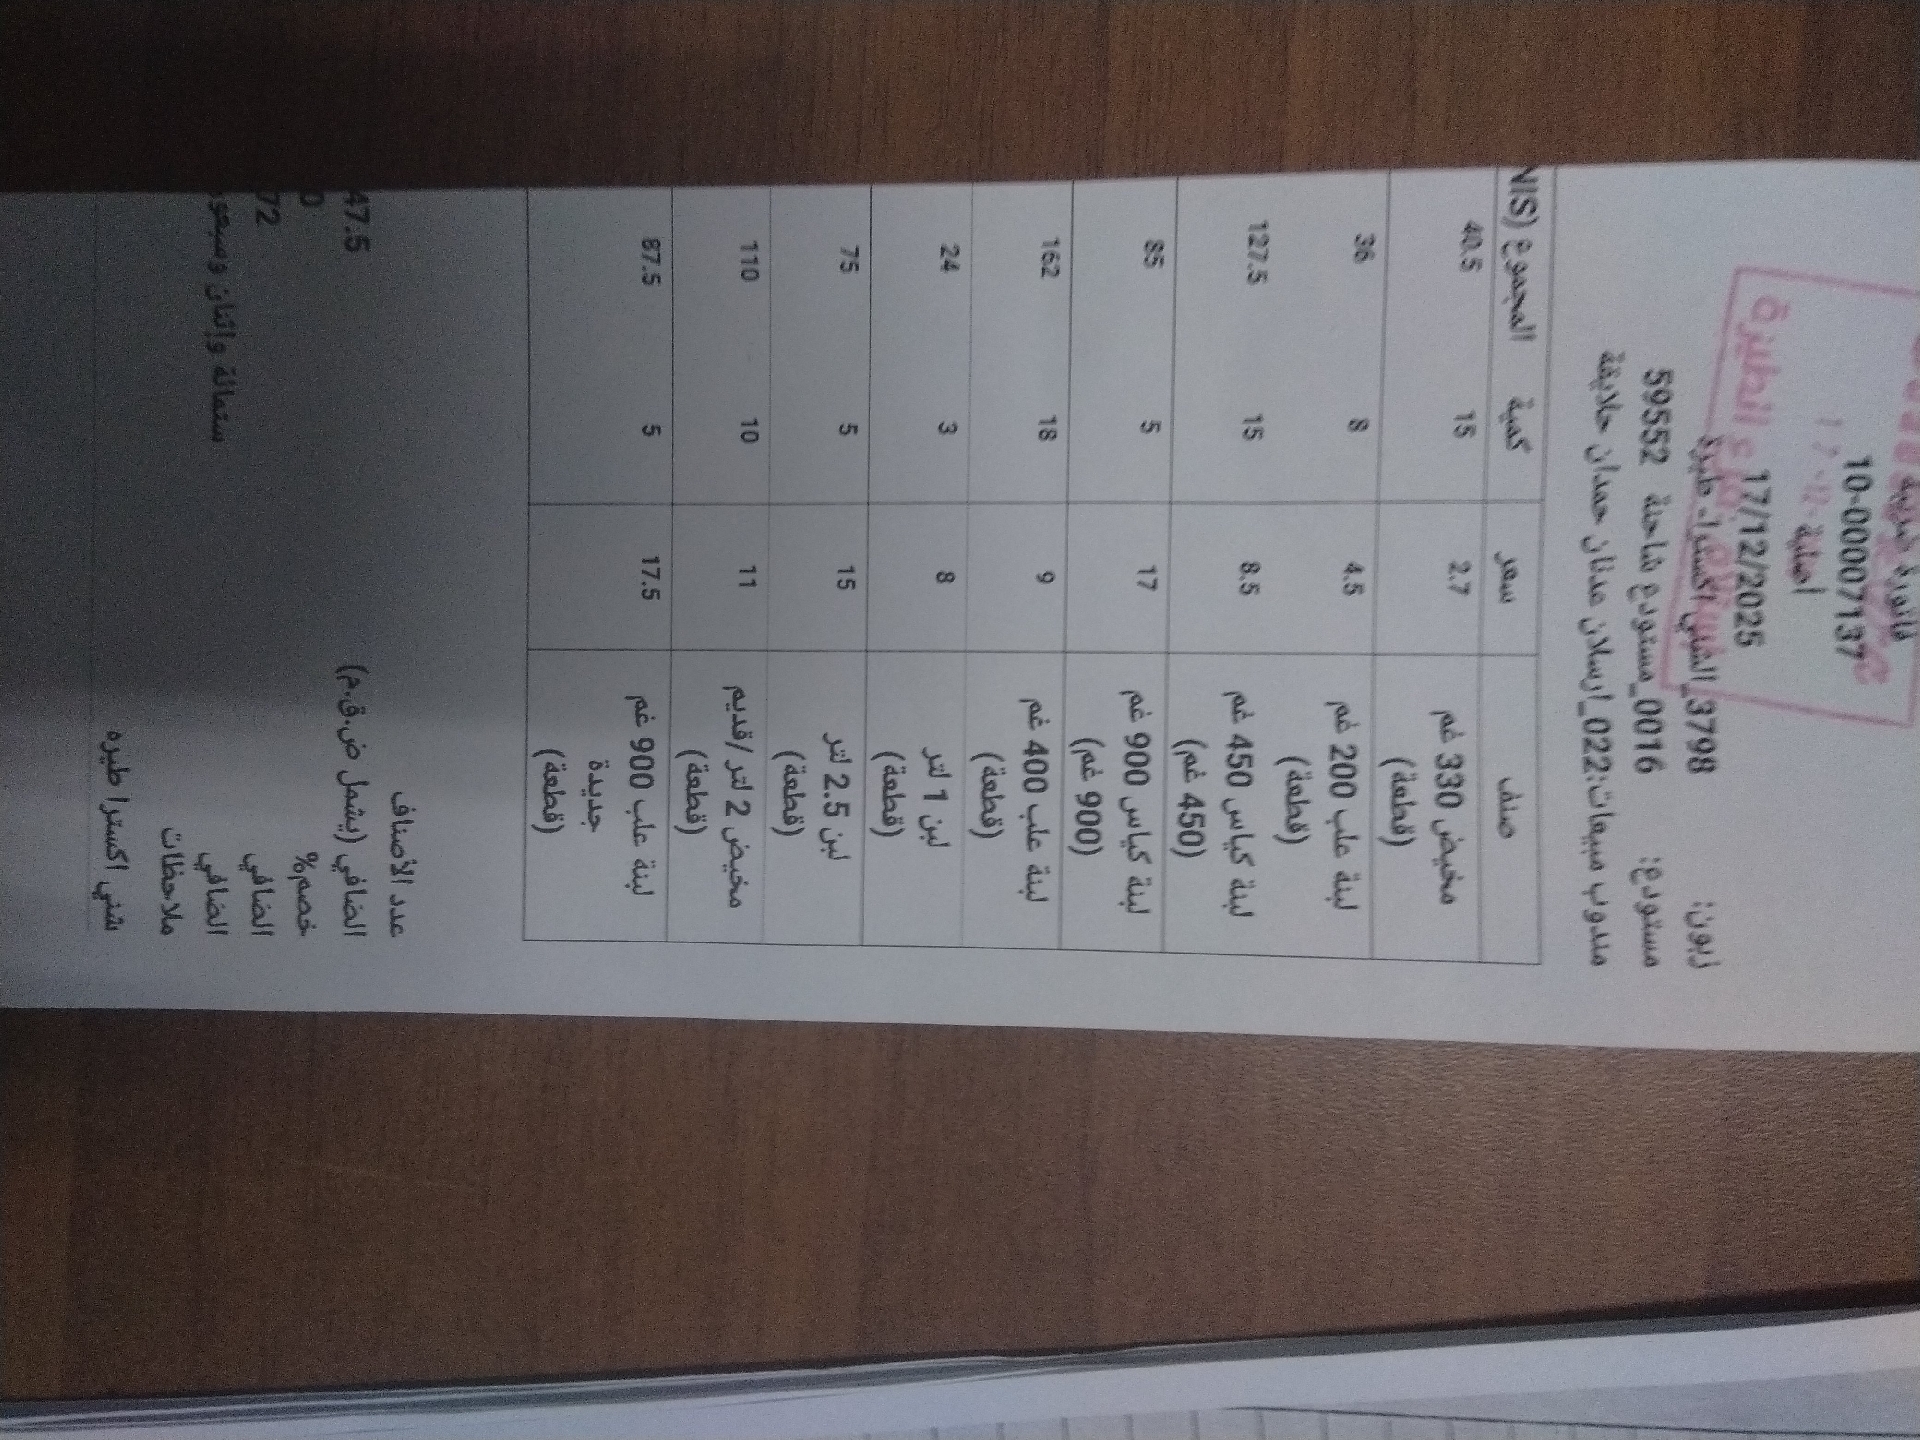 فاتورة ضريبية
10-00007137
اصلية
17/12/2025
زبون: 3798_الشني اكسترا- طيرة
مستودع: 0016_مستودع شاحنة 59552
مندوب مبيعات:022_ارسلان عدنان حمدان حلايقة
صنف سعر كمية المجموع (NIS
مخيض 330 غم (قطعة) 2.7 15 40.5
لبنة علب 200 غم (قطعة) 4.5 8 36
لبنة كياس 450 غم (450 غم) 8.5 15 127.5
لبنة كياس 900 غم (900 غم) 17 5 85
لبنة علب 400 غم (قطعة) 9 18 162
لبن 1 لتر (قطعة) 8 3 24
لبن 2.5 لتر (قطعة) 15 5 75
مخيض 2 لتر /قديم (قطعة) 11 10 110
لبنة علب 900 غم جديدة (قطعة) 17.5 5 87.5
عدد الأصناف
الصافي (يشمل ض.ق.م) 47.5
خصم% 0
الصافي 72
الصافي ستمائة واثنان وسبعو
ملاحظات
شني اكسترا طيره